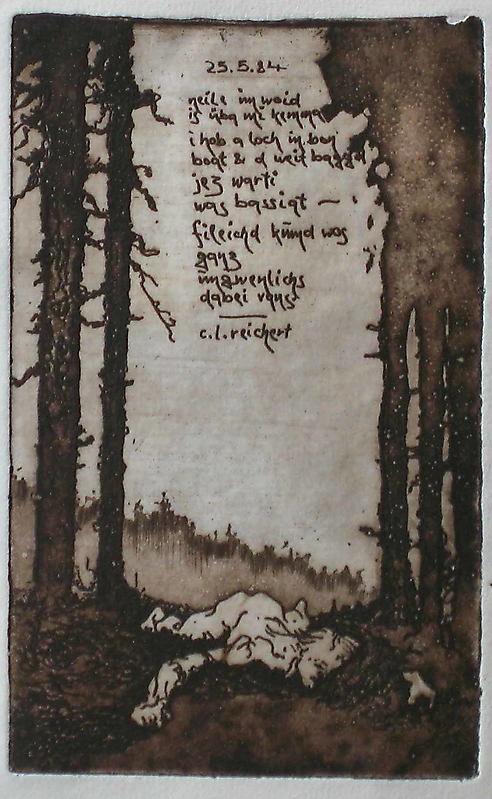 25.5.84
neile im woid
is üba mi kemma
i hob a loch in bon
boat & d weit baggd
jez warti
was bassiat —
fileichd kimd was
ganz
ungwenlichs
dabei raus
c.l.reichert